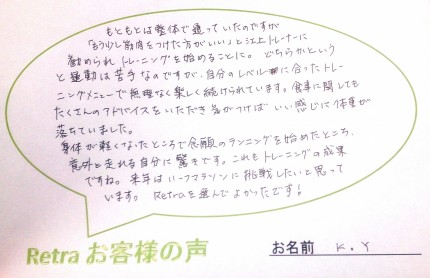 もともとは整体で通っていたのですが
「もう少し筋肉をつけた方がいい」と江上トレーナーに
勧められトレーニングを始めることに。どちらかという
と運動は苦手なのですが、自分のレベルに合ったトレー
ニングメニューで無理なく楽しく続けられています。食事に関しても
たくさんのアドバイスをいただき気がつけばいい感じに体重が
落ちていました。
身体が軽くなったところで念願のランニングを始めたところ、
意外と走れる自分に驚きです。これもトレーニングの成果
ですね。来年はハーフマラソンに挑戦したいと思って
います。Retraを選んでよかったです!
Retra お客様の声
お名前 K.Y